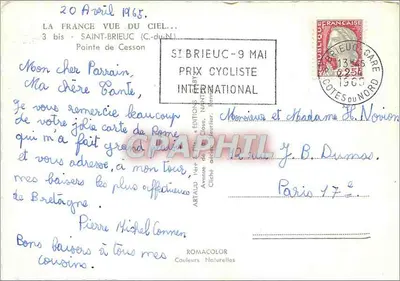 20 Avril 1965.
LA FRANCE VUE DU CIEL...
3 bis - SAINT-BRIEUC (C.-du-N.)
Pointe de Cesson
Mon cher Parrain,
Ma chère Tante,
je vous remercie beaucoup
de votre jolie carte de Rome
qui m'a fait grand plaisir
et vous adresse, à mon tour,
mes baisers les plus affectueux
de Bretagne.
Pierre Michel
Bons baisers à tous mes
cousins.
ST BRIEUC - 9 MAI
PRIX CYCLISTE
INTERNATIONAL
REPUBLIQUE FRANÇAISE
0,25
ST BRIEUC GARE
1965
COTES DU NORD
Monsieur et Madame H. Novion
rue J. B. Dumas.
Paris 17e.
CPAPHIL
ROMACOLOR
Couleurs Naturelles